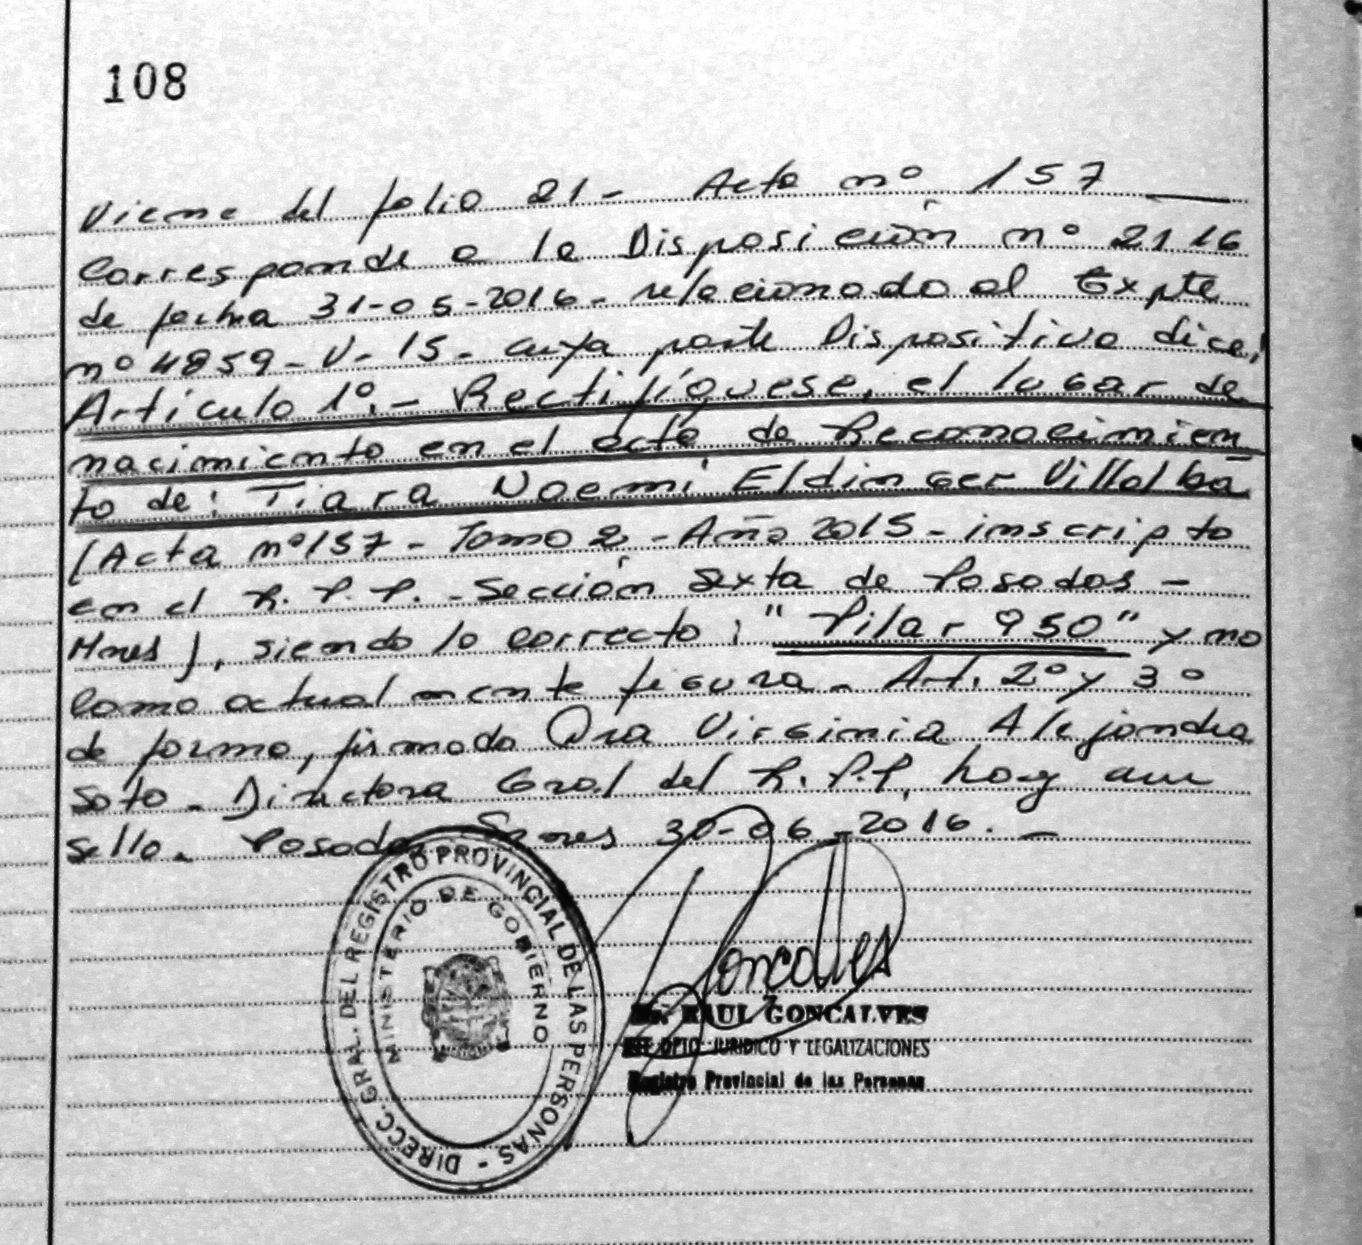 108
Viene del folio 21- Acta nº 157
Corresponde a la Disposición nº 2116
de fecha 31-05-2016- relacionado al Expte
nº 4859-V-15- cuya parte Dispositiva dice:
Artículo 1º.- Rectifíquese, el lugar de
nacimiento en el acta de Reconocimien
to de: Tiara Noemí Eldinger Villalba
(Acta nº 157- Tomo 2 - Año 2015- inscripto
en el R.P.P.- Sección Sexta de Posadas -
Mnes), siendo lo correcto: "Pilar 950" y no
como actualmente figura- Art. 2º y 3º
de forma, firmado Dra Virginia Alejandra
Soto- Directora Gral del R.P.P, hay un
sello- Posadas 30-06-2016.-
DIRECC. GRAL. DEL REGISTRO PROVINCIAL DE LAS PERSONAS -
MINISTERIO DE GOBIERNO
Goncalves
Dr. RAUL GONCALVES
JEFE DPTO JURIDICO Y LEGALIZACIONES
Registro Provincial de las Personas